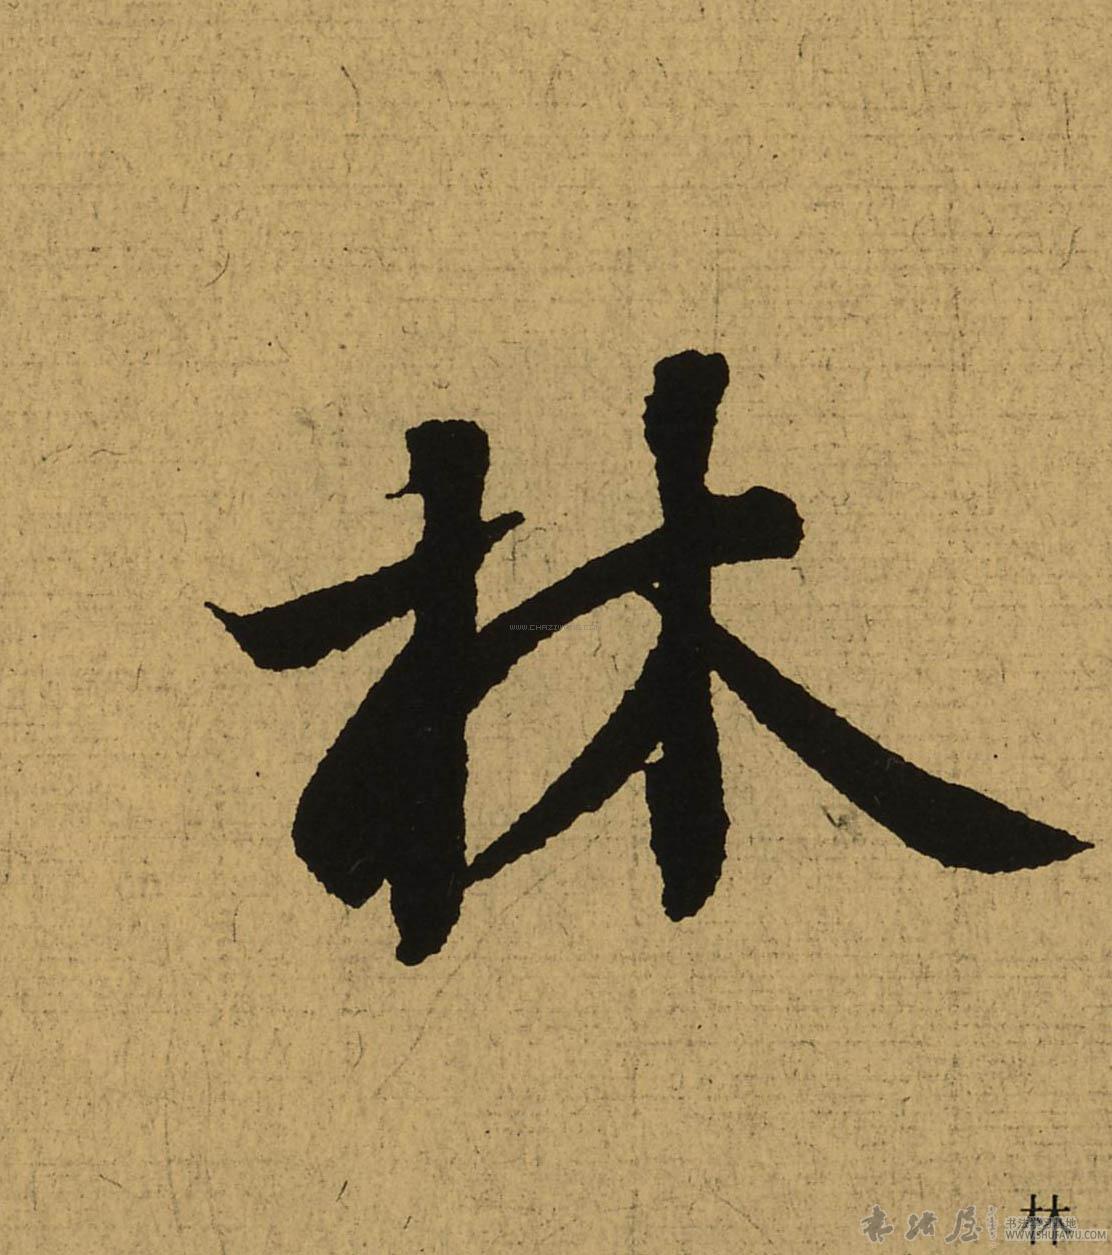 林
WWW.CHAZIWANG.COM
林
书法屋
书法学习基地
WWW.SHUFAWU.COM